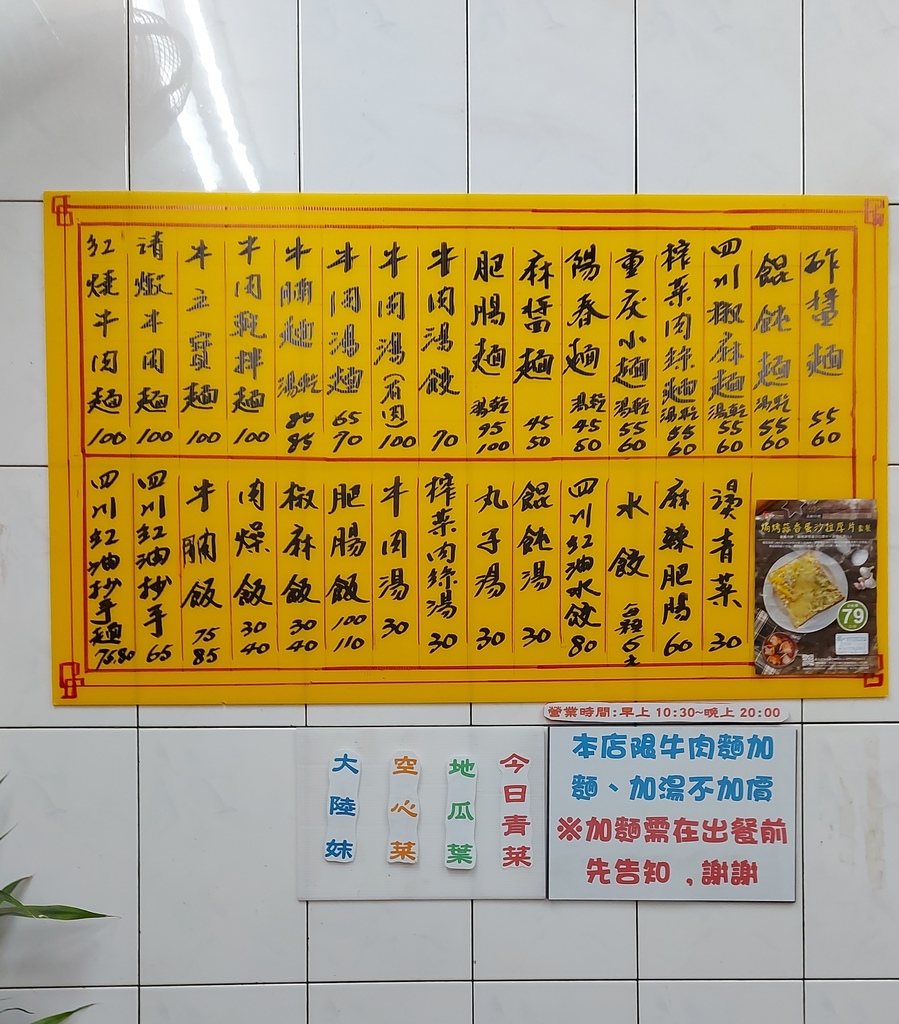 酢醬麵 55 60
餛飩麵 湯乾 55 60
四川椒麻麵 湯乾 55 60
榨菜肉絲麵 湯乾 55 60
重庆小麵 湯乾 55 60
陽春麵 湯乾 45 50
麻醬麵 45 50
肥腸麵 湯乾 95 100
牛肉湯餃 70
牛肉湯(有肉) 100
牛肉湯麵 65 70
牛腩麵 湯乾 80 85
牛肉乾拌麵 100
牛三寶麵 100
清燉牛肉麵 100
紅燒牛肉麵 100
燙青菜 30
麻辣肥腸 60
水餃 每顆6元
四川紅油水餃 80
餛飩湯 30
丸子湯 30
榨菜肉絲湯 30
牛肉湯 30
肥腸飯 100 110
椒麻飯 30 40
肉燥飯 30 40
牛腩飯 75 85
四川紅油抄手 65
四川紅油抄手麵 75.80
焗烤蒜香蛋沙拉厚片套餐
79
營業時間:早上 10:30~晚上 20:00
今日青菜
地瓜葉
空心菜
大陸妹
本店限牛肉麵加
麵、加湯不加價
※加麵需在出餐前
先告知,謝謝